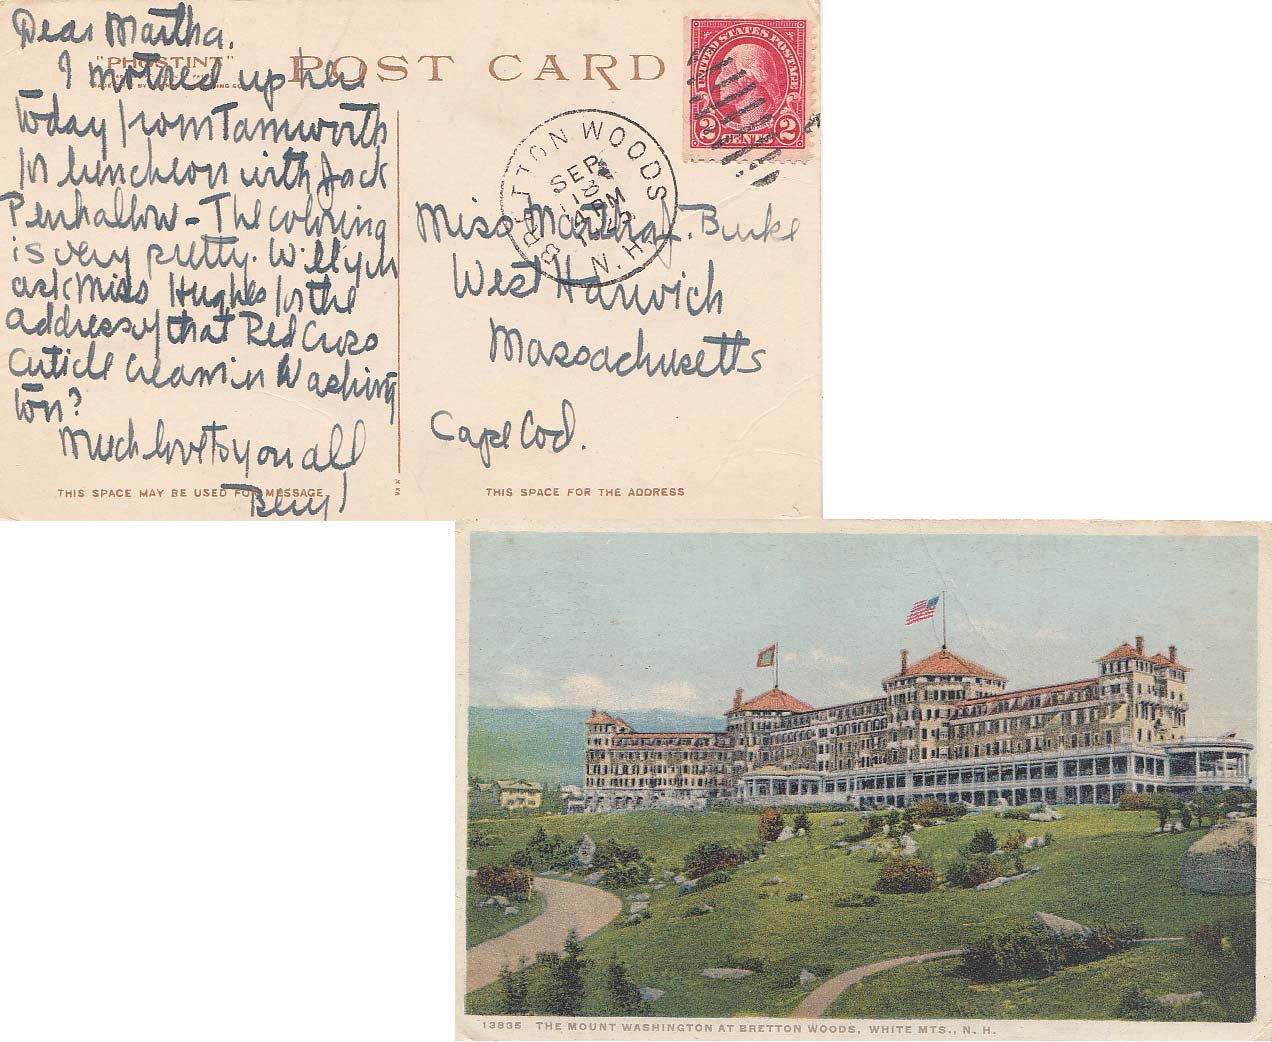 Dear Martha.
"PHOSTINT"
POST CARD
I motored up here
today from Tamworth
for luncheon with Jack
Penhallow - The coloring
is very pretty. Will you
ask Miss Hughes for the
address of that Red Cross
Cuticle Cream in Washing
ton?
Much love to you all
Beryl
THIS SPACE MAY BE USED FOR MESSAGE
UNITED STATES POSTAGE
2 CENTS 2
BRETTON WOODS
N.H.
SEP
18
4 PM
Miss Martha J. Burke
West Harwich
Massachusetts
Cape Cod.
THIS SPACE FOR THE ADDRESS
13835 THE MOUNT WASHINGTON AT BRETTON WOODS, WHITE MTS., N. H.